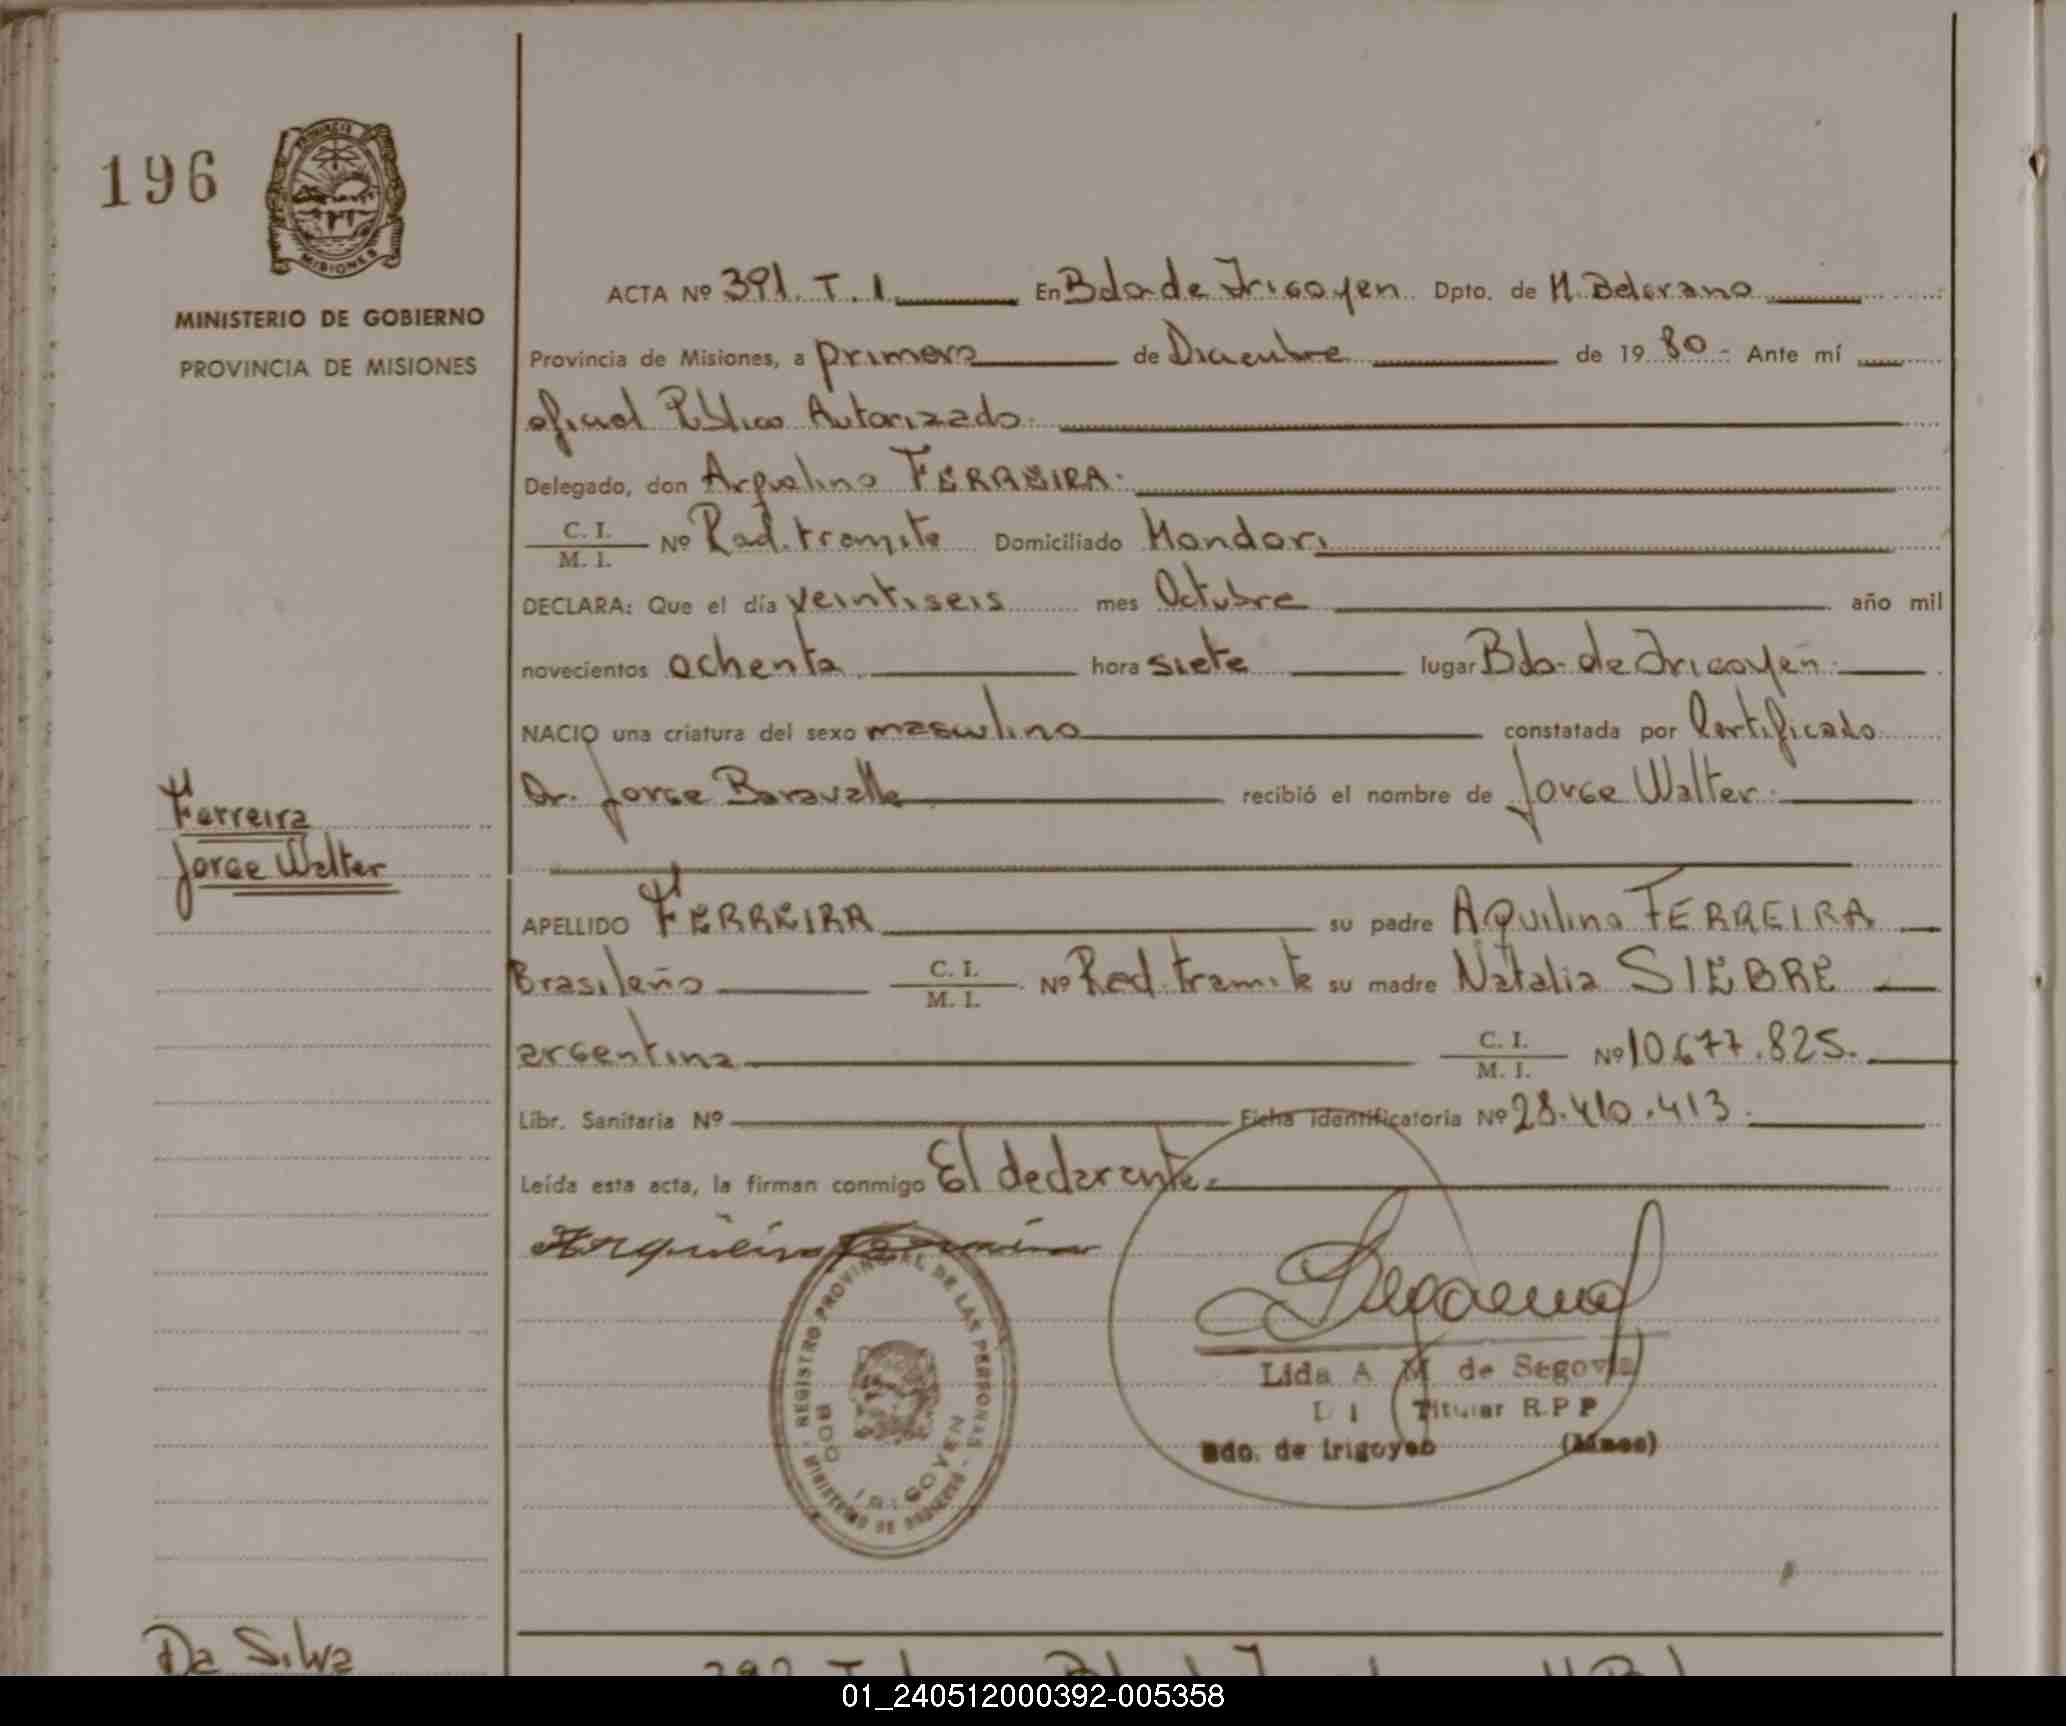 196
PROVINCIA
MISIONES
MINISTERIO DE GOBIERNO
PROVINCIA DE MISIONES
ACTA Nº 391. T. 1. En Bdo de Irigoyen Dpto. de M. Belgrano
Provincia de Misiones, a primero de Diciembre de 19 80 - Ante mí
oficial Publico Autorizado.
Delegado, don Arquelino FERREIRA.
C. I.
M. I.
Nº Rad. tramite Domiciliado Mondori
DECLARA: Que el día veintiseis mes Octubre año mil
novecientos ochenta hora siete lugar Bdo. de Irigoyen.
NACIO una criatura del sexo masculino constatada por Certificado
Dr. Jorge Baravalle recibió el nombre de Jorge Walter.
Ferreira
Jorge Walter
APELLIDO FERREIRA su padre Aquilino FERREIRA
Brasileño C. I. M. I. Nº Rad. tramite su madre Natalia SIEBRE
argentina C. I. M. I. Nº 10.677.825.
Libr. Sanitaria Nº Ficha identificatoria Nº 28.410.413.
Leída esta acta, la firman conmigo El declarante.
REGISTRO PROVINCIAL DE LAS PERSONAS
MINISTERIO DE GOBIERNO
BDO. IRIGOYEN
Lida A M de Segovia
Titular R.P.P
Bdo. de Irigoyen (Mnes)
Da Silva
01_240512000392-005358